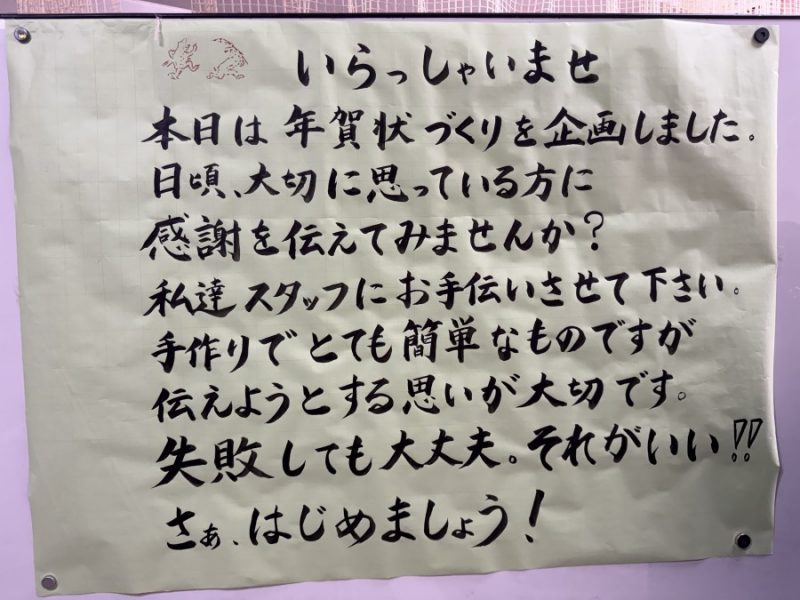 いらっしゃいませ
本日は年賀状づくりを企画しました。
日頃、大切に思っている方に
感謝を伝えてみませんか?
私達スタッフにお手伝いさせて下さい。
手作りでとても簡単なものですが
伝えようとする思いが大切です。
失敗しても大丈夫。それがいい!!
さぁ、はじめましょう!